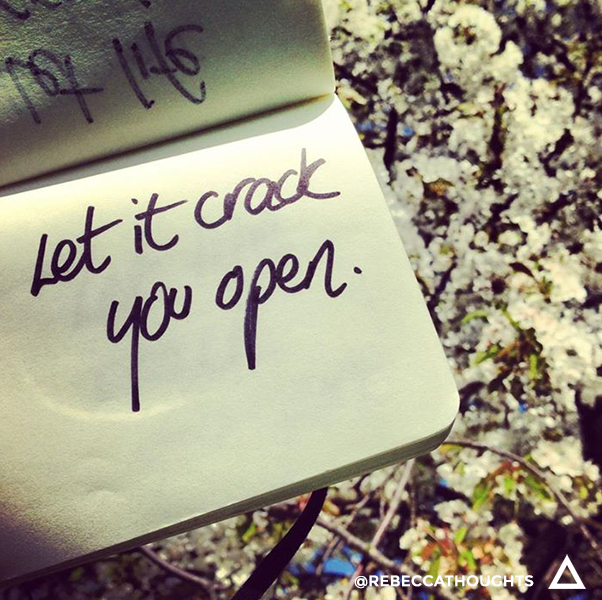 Let it crack
you open.
@REBECCATHOUGHTS